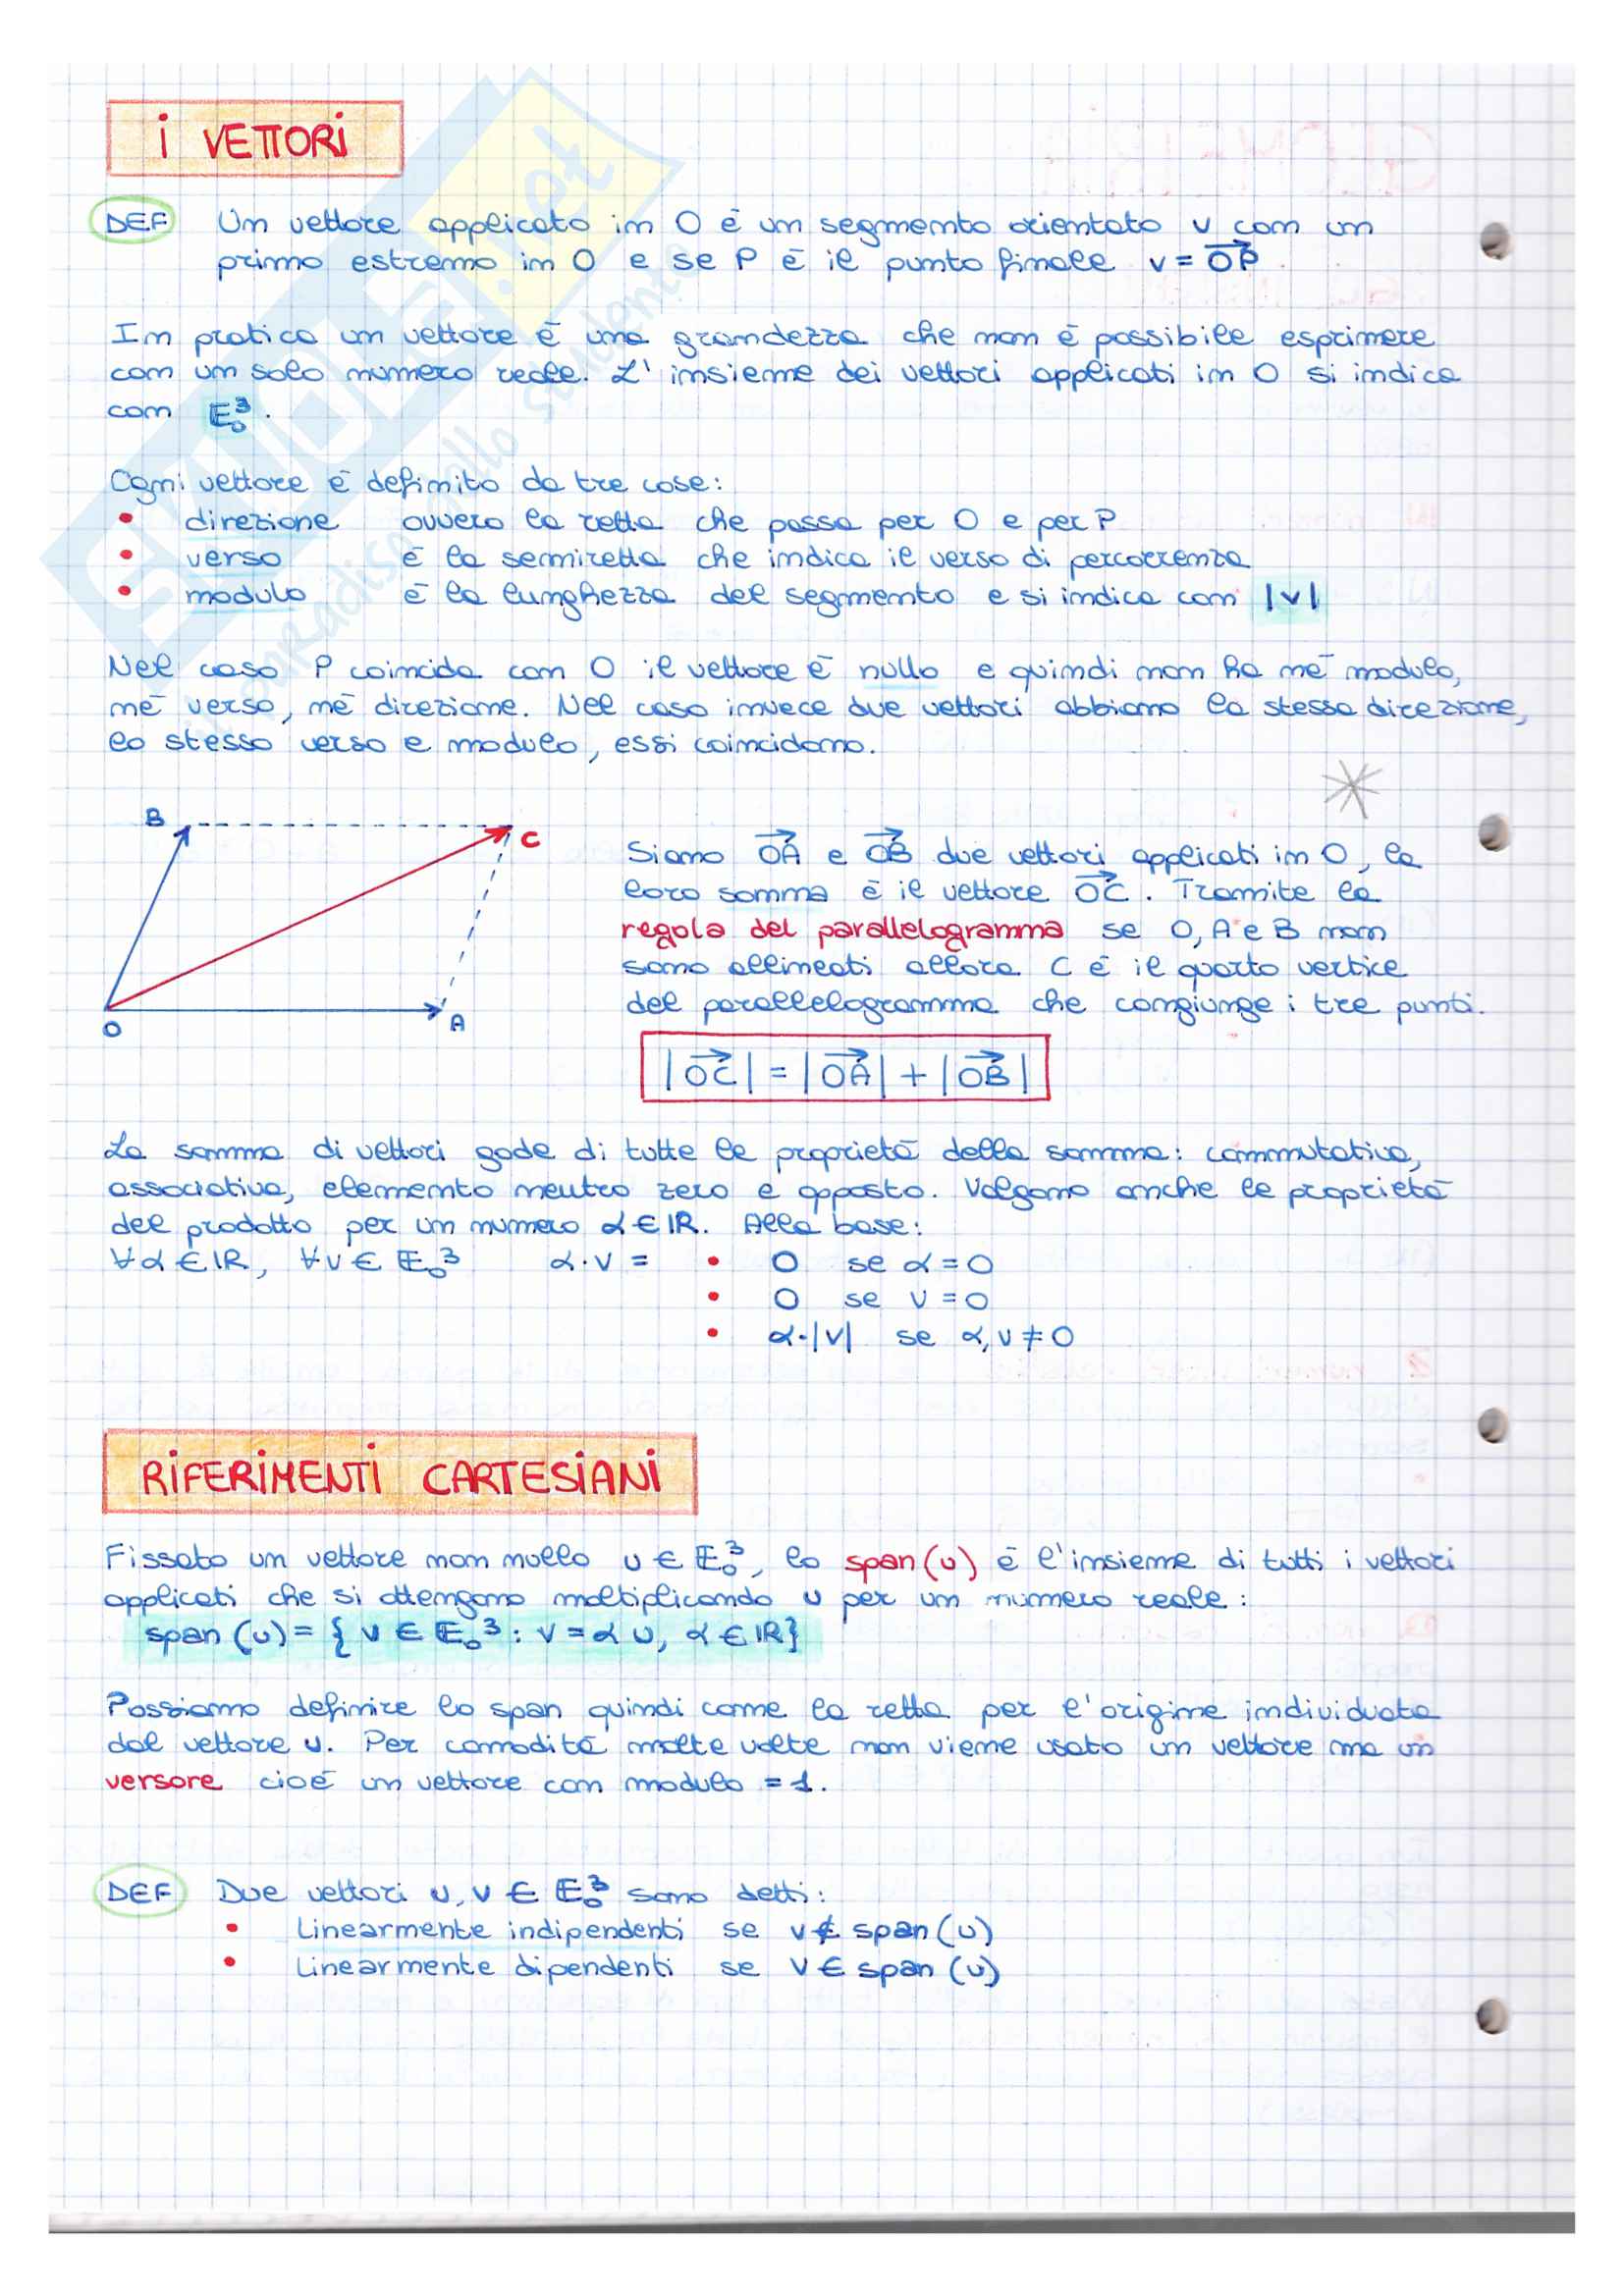 i VETTORi
DEF Un vettore applicato in O è un segmento orientato v con un
primo estremo in O e se P è il punto finale v = \overrightarrow{OP}.
In pratica un vettore è una grandezza che non è possibile esprimere
con un solo numero reale. L'insieme dei vettori applicati in O si indica
con 𝔼₀³.
Ogni vettore è definito da tre cose:
• direzione ovvero la retta che passa per O e per P
• verso è la semiretta che indica il verso di percorrenza
• modulo è la lunghezza del segmento e si indica con |v|
Nel caso P coincida con O il vettore è nullo e quindi non ha né modulo,
né verso, né direzione. Nel caso invece due vettori abbiano la stessa direzione,
lo stesso verso e modulo, essi coincidono.
B
C
O
A
Siano \overrightarrow{OA} e \overrightarrow{OB} due vettori applicati in O, la
loro somma è il vettore \overrightarrow{OC}. Tramite la
regola del parallelogramma se O, A e B non
sono allineati allora C è il quarto vertice
del parallelogramma che congiunge i tre punti.
|\overrightarrow{OC}| = |\overrightarrow{OA}| + |\overrightarrow{OB}|
La somma di vettori gode di tutte le proprietà della somma: commutativa,
associativa, elemento neutro zero e opposto. Valgono anche le proprietà
del prodotto per un numero α ∈ ℝ. Alla base:
∀α ∈ ℝ, ∀v ∈ 𝔼₀³ α·v = • 0 se α = 0
• 0 se v = 0
• α·|v| se α, v ≠ 0
RiFERiMENTi CARTESiANi
Fissato un vettore non nullo u ∈ 𝔼₀³, lo span(u) è l'insieme di tutti i vettori
applicati che si ottengono moltiplicando u per un numero reale:
span(u) = { v ∈ 𝔼₀³ : v = αu, α ∈ ℝ}
Possiamo definire lo span quindi come la retta per l'origine individuata
dal vettore u. Per comodità molte volte non viene usato un vettore ma un
versore cioè un vettore con modulo = 1.
DEF Due vettori u, v ∈ 𝔼₀³ sono detti:
• Linearmente indipendenti se v ∉ span(u)
• Linearmente dipendenti se v ∈ span(u)
SKUOLA.net
il paradiso dello studente